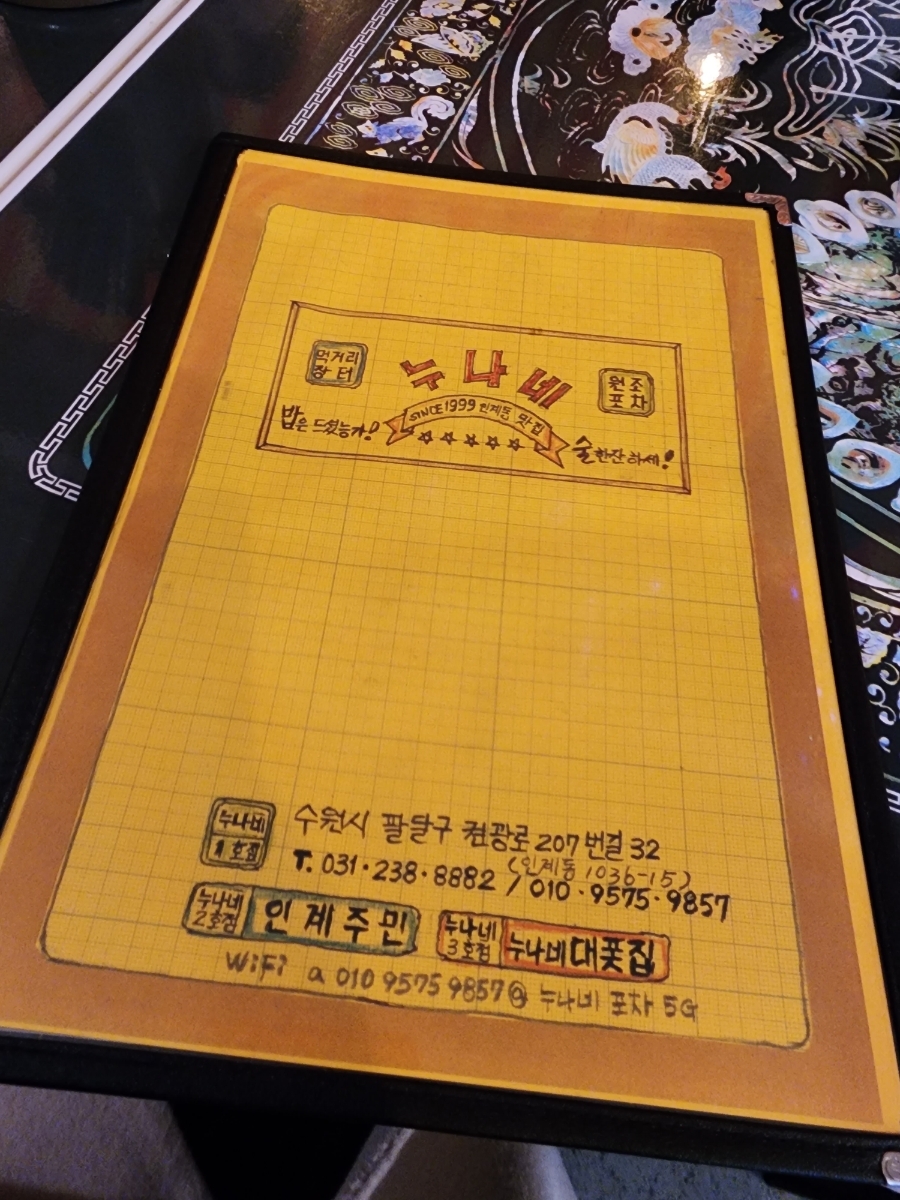 먹거리
장터
누나네
원조
포차
SINCE 1999 인계동 맛집
밥은 드셨는가!
술한잔하세!
누나네
1호점
수원시 팔달구 권광로 207번길 32
(인계동 1036-15)
T. 031·238·8882 / 010·9575·9857
누나네
2호점
인계주민
누나네
3호점
누나네대폿집
WiFi a 010 9575 9857@ 누나네 포차 5G